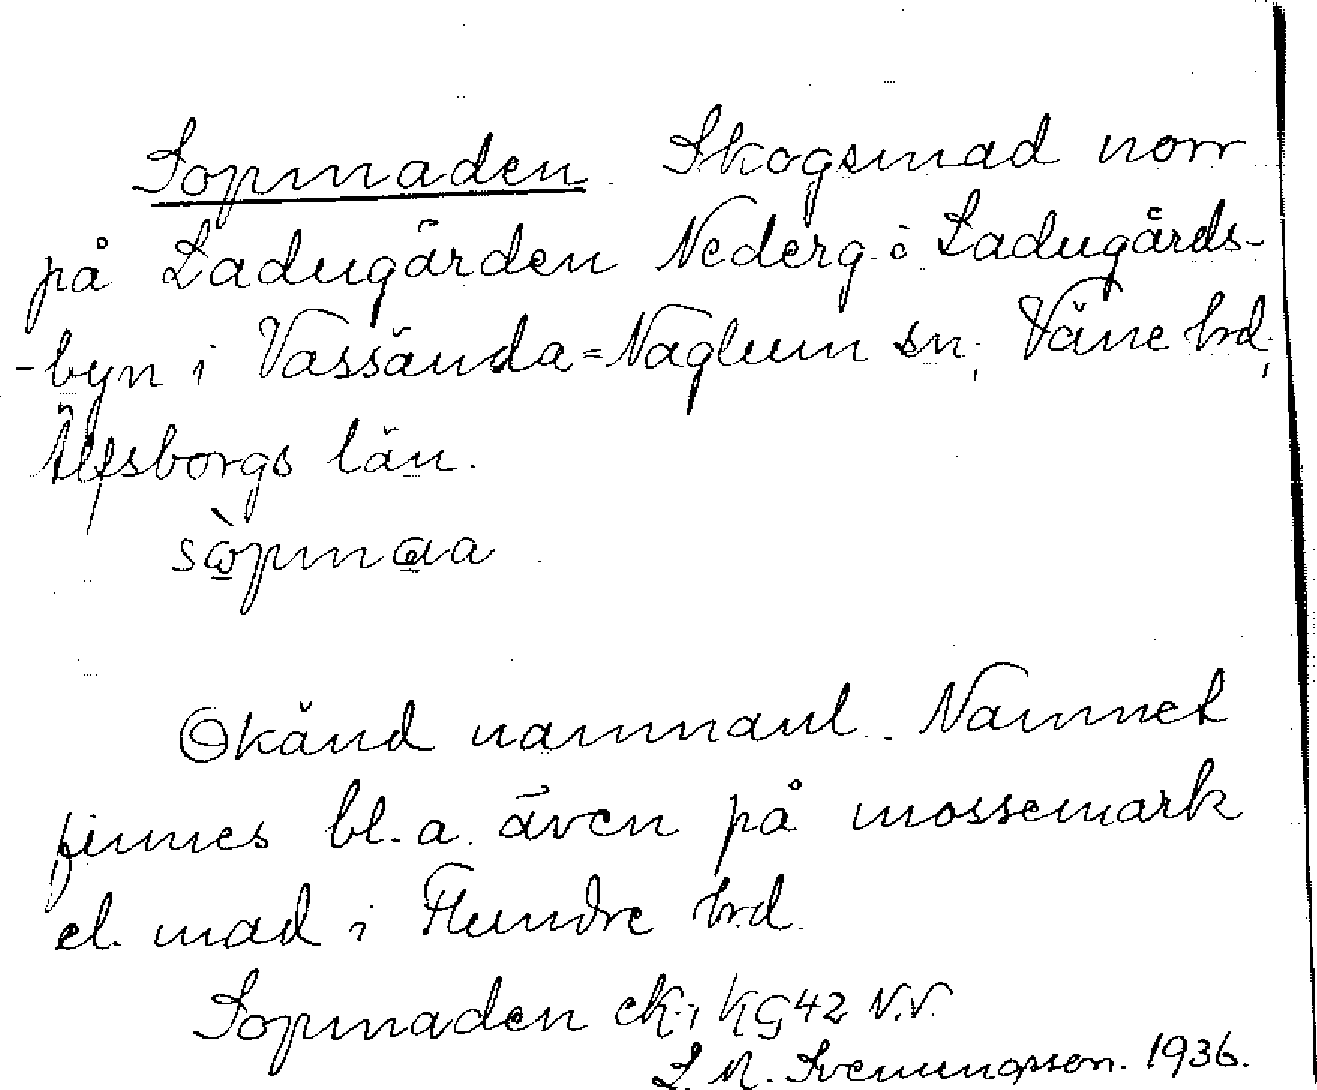 Sopmaden Skogsmad norr
på Ladugården Nederg. i Ladugårds-
-byn i Vassända=Naglum sn, Väne hrd,
Älfsborgs län.
sòpmaa
Okänd namnanl. Namnet
finnes bl.a. även på mossemark
el. mad i Flundre hrd.
Sopmaden ek. i KG42 N.V.
L. M. Svenungsson. 1936.